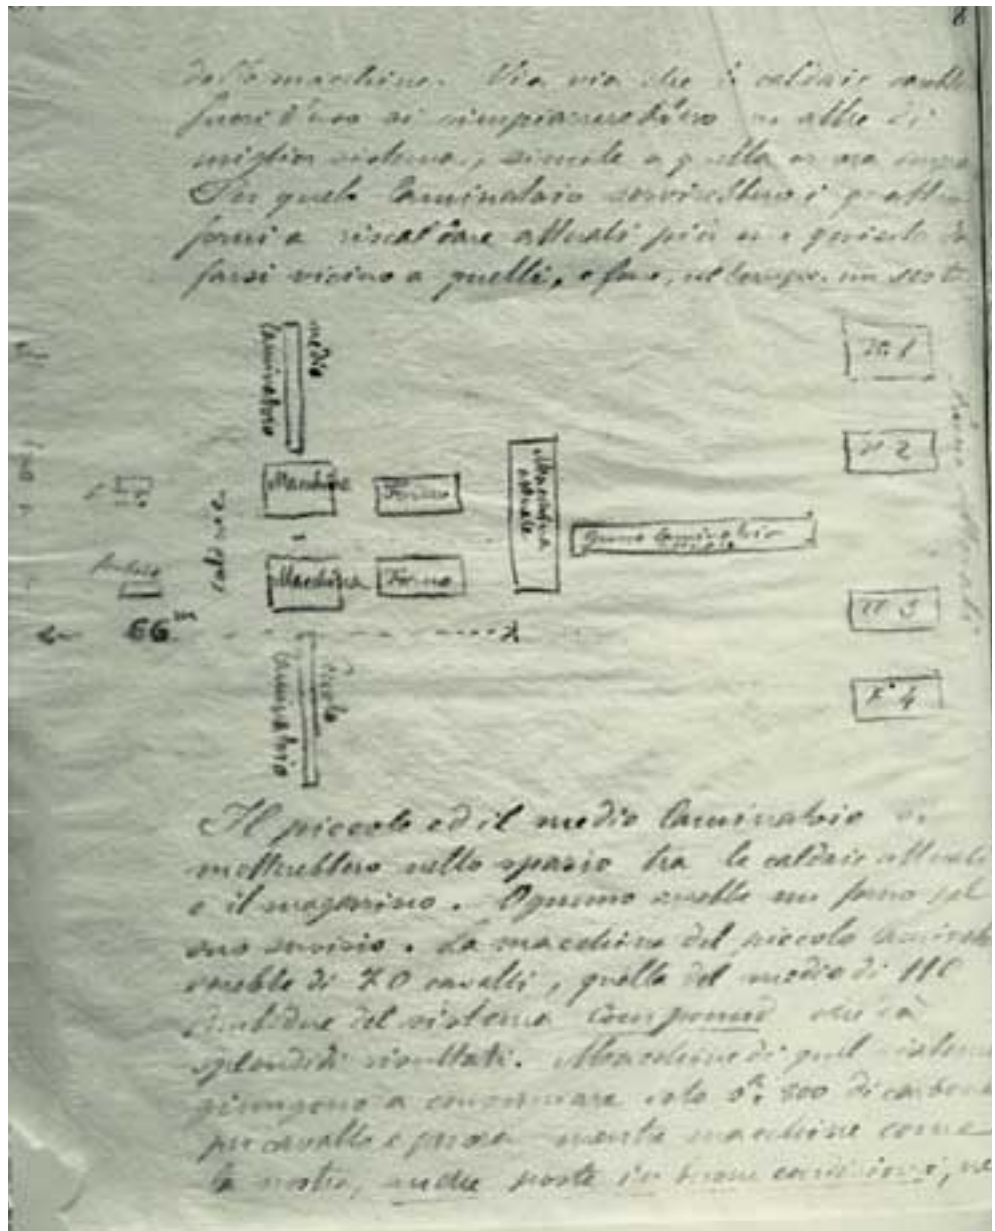 della macchina. Via via che le caldaie
fuori d'uso si rimpiazzerebbero con altre di
miglior sistema, simile a quella or ora
Per quel laminatoio servirebbero i quattro
forni a riscaldare attuali più un quinto da
farsi vicino a quelli, e fors', nel tempo, un sesto
medio
laminatoio
N. 1
N. 2
Macchina
Forno
Macchina
attuale
Grosso laminatoio
caldaie
Macchina
Forno
N. 3
66 m
N. 4
Piccolo
laminatoio
Il piccolo ed il medio laminatoio si
metterebbero nello spazio tra le caldaie attuali
e il magazzino. Ognuno avrebbe un forno pel
suo servizio. La macchina del piccolo laminat
sarebbe di 70 cavalli, quella del medio di 110
Ambidue del sistema Compound che dà
splendidi risultati. Macchine di quel sistema
giungono a consumare solo 0k. 800 di carbone
per cavallo e per ora mentre macchine come
la nostra, anche poste in buone condizioni, ne